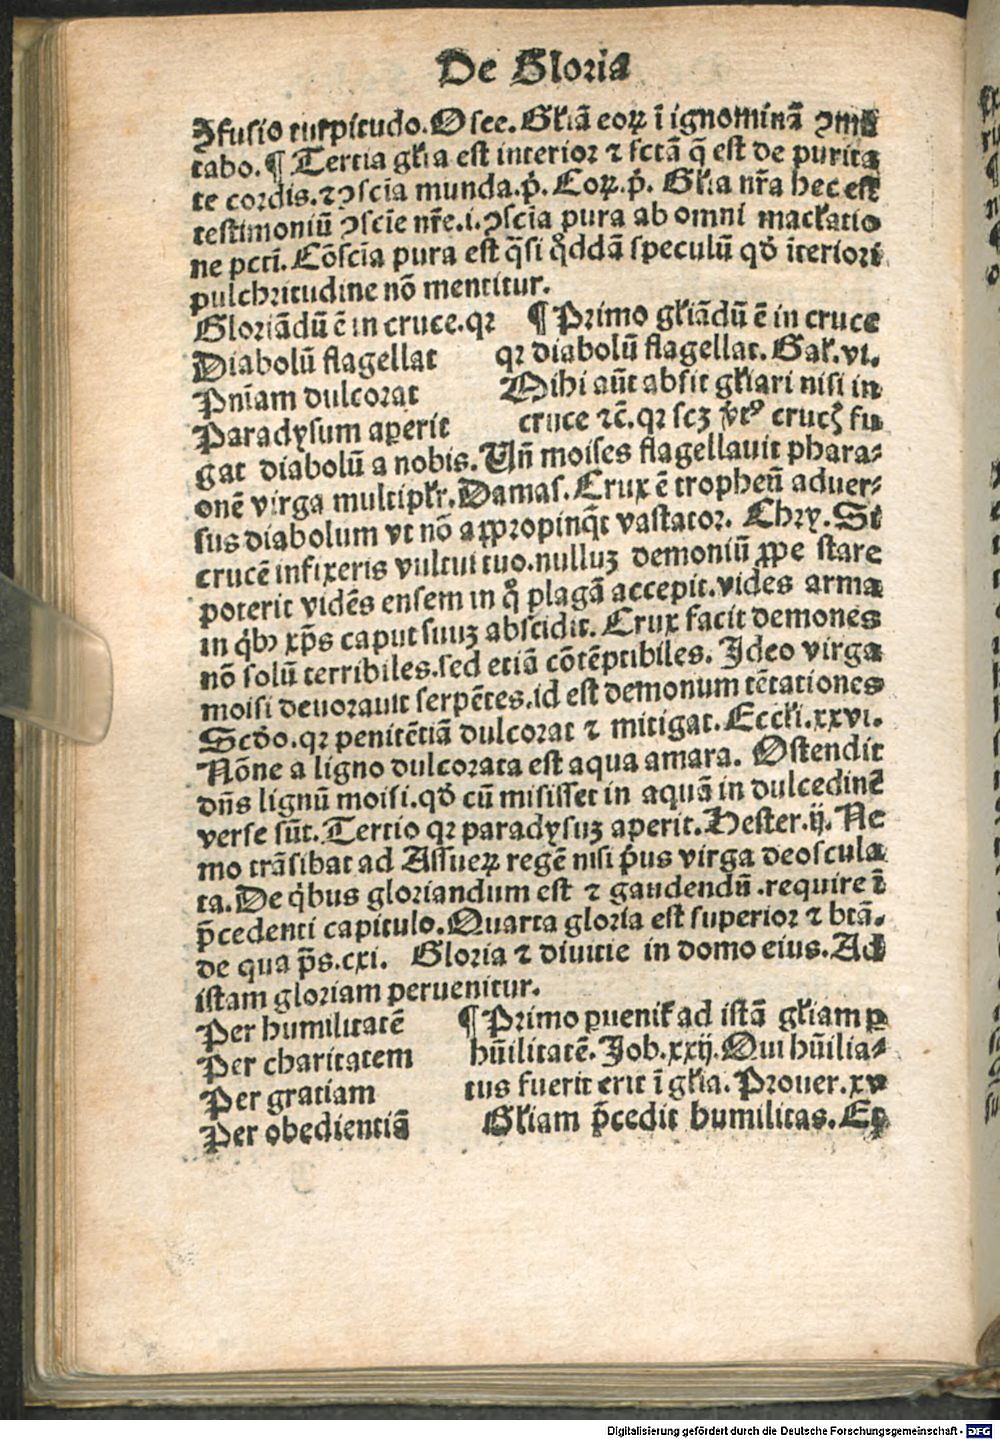 De Gloria
Ↄfusio turpitudo. Osee. Głiã eoꝝ ĩ ignominiã ↄmu
tabo. ¶ Tertia głia est interior ⁊ sctã q̃ est de purita
te cordis. ⁊ ↄscĩa munda. p̃. Coꝝ. p̃. Głia nr̃a hec est
testimoniũ ↄscĩe nr̃e. i. ↄscĩa pura ab omni macłatio
ne pcti. Cõscĩa pura est q̃si qͦddã speculũ qð ĩteriori
pulchritudine nõ mentitur.
Gloriãdũ ẽ in cruce. qꝛ ¶ Primo głiãdũ ẽ in cruce
Diabolũ flagellat qꝛ diabolũ flagellat. Gał. vi.
Pnĩam dulcorat Mihi aũt absit głiari nisi in
Paradysum aperit cruce ⁊c̃. qꝛ scꝫ ṽtꝰ crucꝭ fu
gat diabolũ a nobis. Vñ moises flagellauit phara⸗
onẽ virga multipłr. Damas. Crux ẽ tropheũ aduer⸗
sus diabolum vt nõ aꝓpropinq̃t vastator. Chry. Si
crucẽ infixeris vultui tuo. nulluꝫ demoniũ ꝓpe stare
poterit vidẽs ensem in qͦ plagã accepit. vides arma
in qͥbꝰ xp̃s caput suuꝫ abscidit. Crux facit demones
nõ solũ terribiles. sed etiã cõtẽptibiles. Ideo virga
moisi deuorauit serpẽtes. id est demonum tẽtationes
Scðo. qꝛ penitẽtiã dulcorat ⁊ mitigat. Eccłi. xxvi.
Nõne a ligno dulcorata est aqua amara. Ostendit
dñs lignũ moisi. qð cũ misisset in aquã in dulcedinẽ
verse sũt. Tertio qꝛ paradysuꝫ aperit. Hester. ij. Ne
mo trãsibat ad Assueꝝ regẽ nisi pͥus virga deoscula
ta. De qͥbus gloriandum est ⁊ gaudendũ. require ĩ
p̃cedenti capitulo. Quarta gloria est superior ⁊ btã.
de qua p̃s. cxi. Gloria ⁊ diuitie in domo eius. Ad
istam gloriam peruenitur.
Per humilitatẽ ¶ Primo ꝑuenił ad istã głiam ꝑ
Per charitatem hũilitatẽ. Job. xxij. Qui hũilia⸗
Per gratiam tus fuerit erit ĩ głia. Prouer. xv
Per obedientiã Głiam p̃cedit humilitas. Et
Digitalisierung gefördert durch die Deutsche Forschungsgemeinschaft - DFG